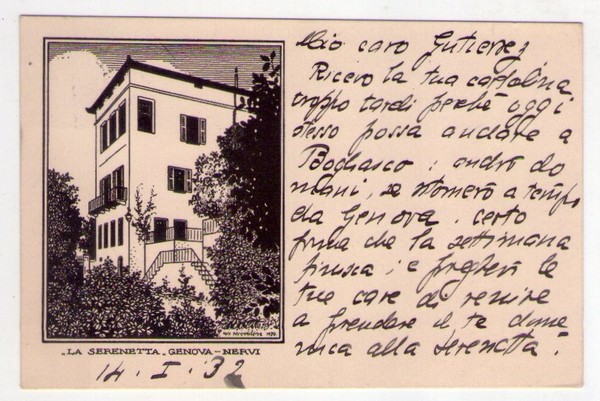 Mio caro Gutierrez
Ricevo la tua cartolina
troppo tardi perché oggi
stesso possa andare a
Bogliasco: andrò do
mani, se tornerò a tempo
da Genova. Certo
prima che la settimana
finisca; e pregherò le
tue care di venire
a prendere il te dome
nica alla Serenetta.
„LA SERENETTA„ GENOVA-NERVI
14. I. 32